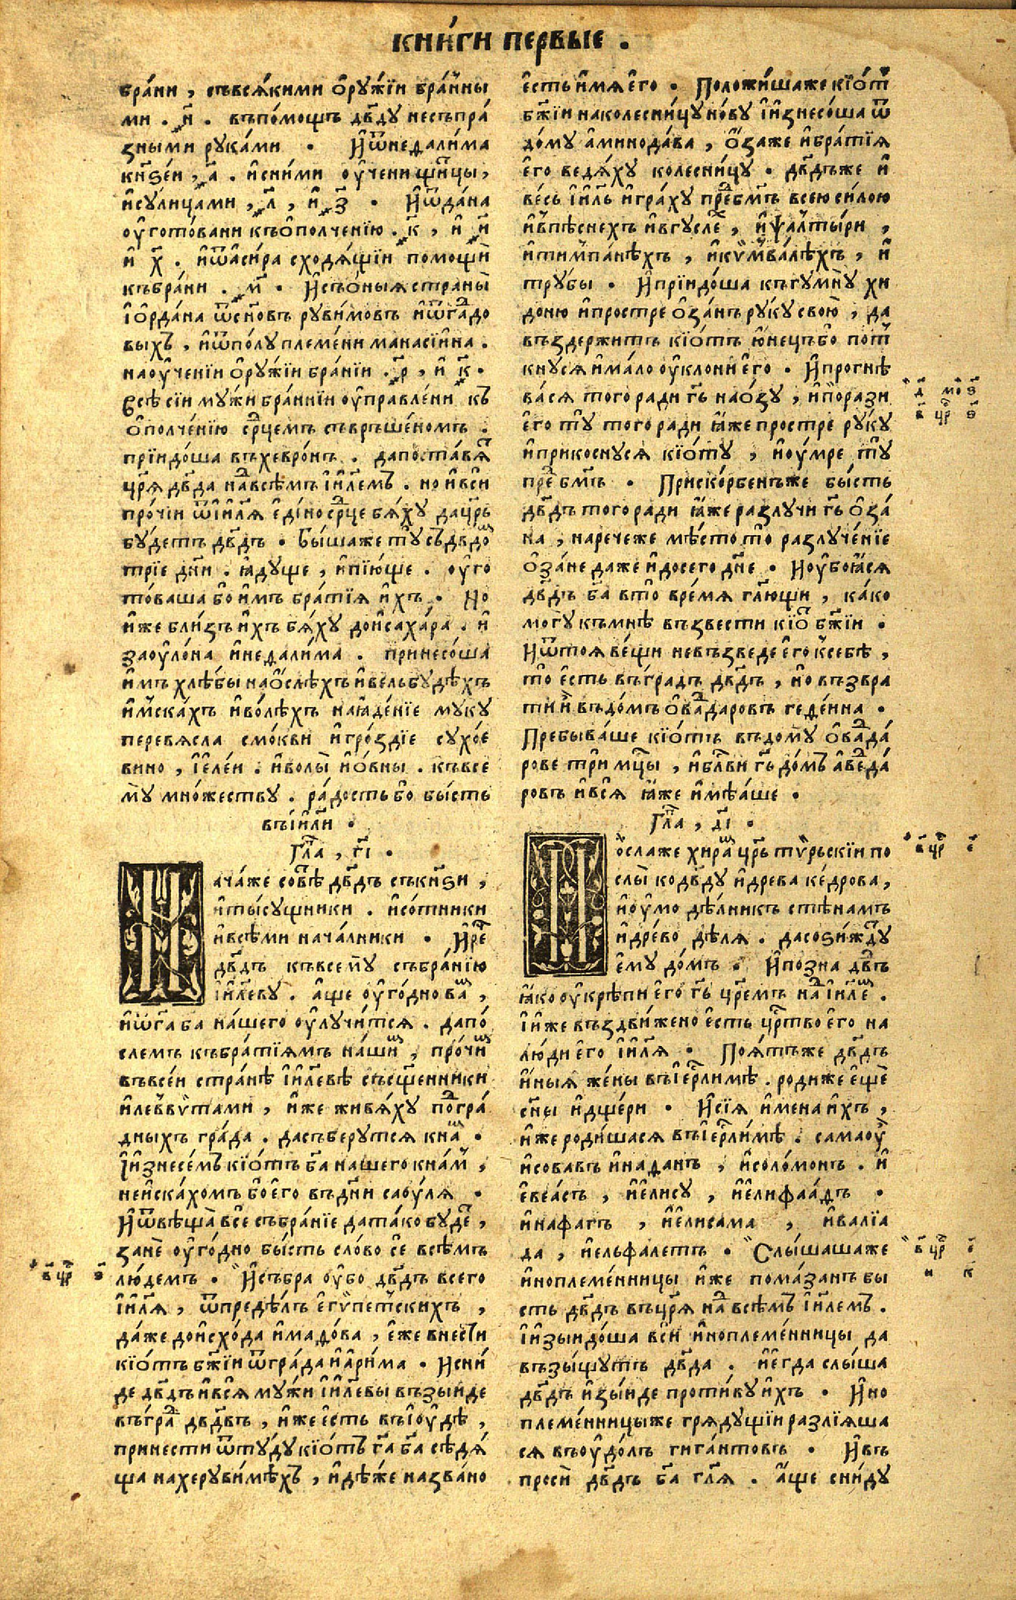 книги первые .
брани , съвсякими оружїи бранны
ми . н҃ . въпомощь дв҃ду несъпра
зными руками . Иѿнедалима
кнѕеи , а҃ . исними оучени щицы ,
исулицами , л҃ , и з҃ . Иѿдана
оуготовани къополченїю . к҃ , и и҃
и х҃ . иѿасира сходящїи помощи
къбрани . м҃ . Исъоныя страны
їордана ѿсн҃овъ рувимовъ иѿгадо
выхъ , иѿполу племени манасїина .
наоученїи оружїи бранїи . р҃ , и к҃ .
всѣ сїи мужи браннїи оуправлени къ
ополченїю ср҃цемъ съвръшеномъ .
прїидоша въхевронъ . дапоставя
цр҃я дв҃да на всѣмъ іи҃лемъ . но ивси
прочїи ѿіи҃ля едіно ср҃це бяху дацр҃ь
будетъ дв҃дъ . Бышаже ту съдв҃до
трїе дн҃и . ядуще , ипїюще . оуго
товаша бо имъ братїя ихъ . Но
иже близъ ихъ бяху доисахара . и
заоулона инедалима . принесоша
имъ хлѣбы наослѣхъ ивельбудѣхъ
имскахъ иволѣхъ наяденїе муку
перевясла смокви игроздїе сухое
вино , іелеи . иволы иовны . къвсе
му множеству . радость бо бысть
въіи҃ли .
Гл҃а , г҃і .
Начаже совѣ дв҃дъ съкнѕи ,
итысущники . исотники
ивсѣми началники . Ире
дв҃дъ къвсему събранїю
іи҃леву . аще оугодно ва ,
иѿг҃а ба нашего оулучится . дапо
слемъ къбратїямъ наши , прочи
въвсеи странѣ іи҃левѣ съсщ҃енники
илеввѵтами , иже живяху по гра
дныхъ града . дасъберутся кна .
Іизнесемъ кїотъ б҃а нашего кнам ,
неискахомъ бо его въдн҃и саоуля .
Иѿвѣща все събранїе датако буде ,
зане оугодно бысть слово се всѣмъ
людемъ . Исъбра оубо дв҃дъ всего
іи҃ля , ѿпредѣлъ егѵпетскихъ ,
даже доисхода имадова , еже внести
кїотъ бж҃їи ѿграда иарима . Исни
де дв҃дъ ився мужи іи҃левы възыиде
въгра дв҃двъ , иже есть въіоудѣ ,
принести ѿтуду кїотъ г҃а б҃а сѣдя
ща нахерувимѣхъ , идѣже названо
есть имя его . Положишаже кїот
бж҃їи наколесницу нову Іизнесоша ѿ
дому аминодава , озаже ибратїя
его ведяху колесницу . дв҃дъже и
весь іи҃ль играху пре б҃мъ всею силою
ивпѣснехъ ивгусле , иѱалтыри ,
итимпанѣхъ , икѵмвалѣхъ , и
трубы . Ипрїидоша къгумну хи
доню ипростре озанъ руку свою , да
въздержитъ кїотъ юнецъ бо пот
кнуся имало оуклони его . Ипрогнѣ
вася того ради г҃ь наозу , ипорази
его ту того ради яже простре руку
иприкоснуся кїоту , иоумре ту
пре б҃мъ . Прискорбенъже бысть
дв҃дъ того ради яже разлучи г҃ь оза
на , наречеже мѣсто то разлученїе
озане даже идосего дн҃е . Ноубояся
дв҃дъ б҃а вто время гл҃ющи , како
могу къмнѣ възвести кїо бж҃їи .
Иѿтоя вещи невъзведе его ксебѣ ,
то есть въградъ дв҃дъ , но възвра
ти и въдомъ овадаровъ геденна .
Пребываше кїотъ въдому овада
рове три мц҃ы , ибл҃ви г҃ь домъ аведа
ровъ ився яже имѣаше .
Гл҃а , д҃і .
Послаже хира цр҃ь тѵрьскїи по
слы кодв҃ду идрева кедрова ,
иоумо дѣлникъ стѣнамъ
идрево дѣля . дасоѕижду
ему домъ . Ипозна дв҃ъ
яко оукрѣпи его г҃ь цр҃емъ на іи҃ле .
Іиже въздвижено есть цр҃тво его на
люди его іи҃ля . Поятъже дв҃дъ
иныя жены въіер҃лимѣ . родиже еще
сн҃ы идщери . Исїя имена ихъ ,
иже родишася въіер҃лимѣ . самаоу
исовавъ инаданъ , исоломонъ . и
евеасъ , иелису , иелифаадъ .
инафагъ , иелисама , ивалїа
да , иельфалетъ . Слышашаже
иноплеменницы иже помазанъ бы
сть дв҃дъ въцр҃я на всѣмъ іи҃лемъ .
Іизыидоша вси иноплеменницы да
възыщутъ дв҃да . иегда слыша
дв҃дъ изыиде противу ихъ . Ино
племенницыже грядущїи разлїяша
ся въоудолъ гигантовъ . Ивъ
проси дв҃дъ б҃а гл҃я . аще сниду